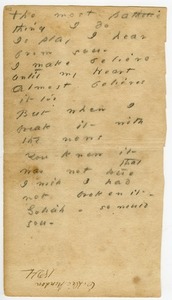 The most pathetic
thing I do
Is play I hear
from you -
I make believe
until my Heart
Almost believes
it too
But when I
break it - with
the news
You knew it -
was not true
I wish I had
not broken it -
Goliah - so would
you -